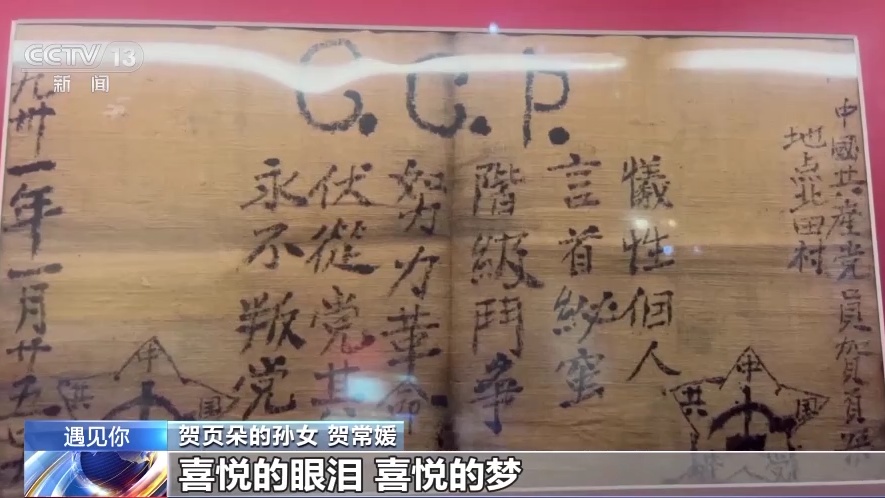 CCTV 13
新闻
C.C.P.
中國共產党員賀頁朶
地点北田村
犠牲個人
言首紗蜜
階級鬥争
努力革命
伏從党其
永不叛党
九卅一年一月廿五
中
共
中
国
共
遇见你
贺页朵的孙女 贺常媛
喜悦的眼泪 喜悦的梦